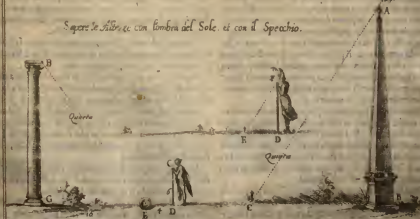 Sapere le Altez.e con l'ombra del Sole. et con il Specchio.
A
B
Quarta
E D
Quinta
C
G
E D
C
B